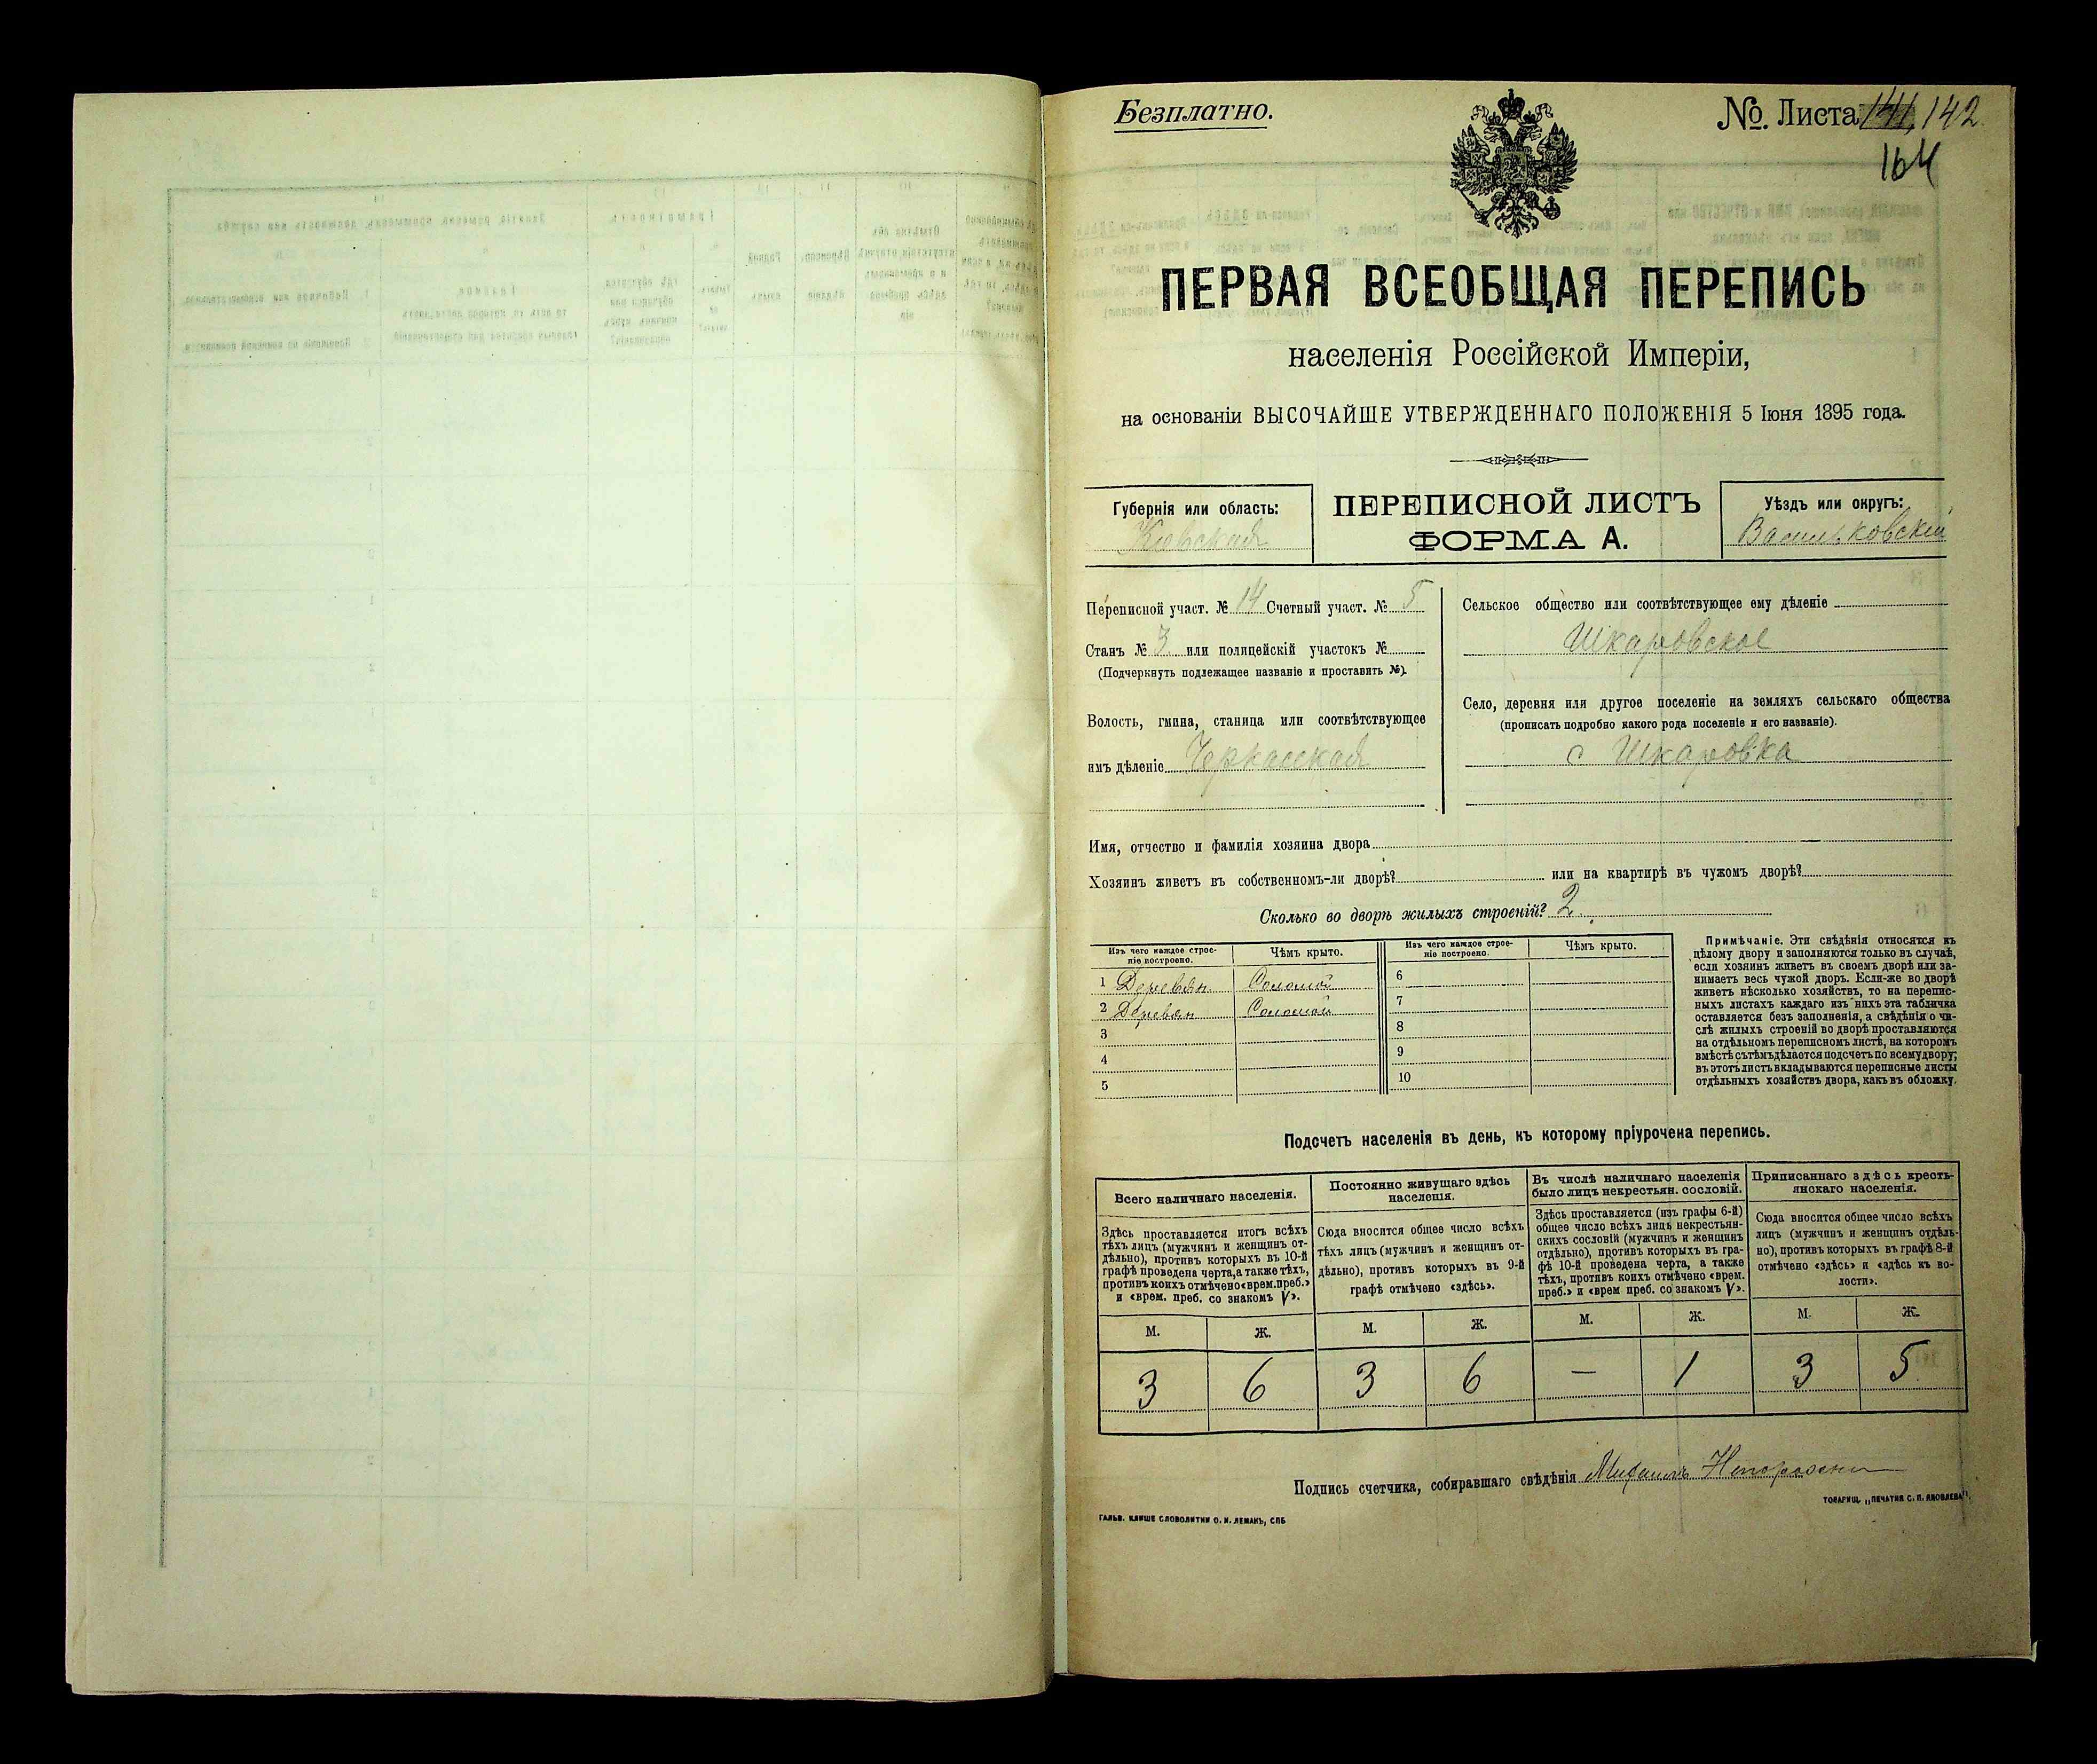 Безплатно.
№. Листа 141, 142
164
ПЕРВАЯ ВСЕОБЩАЯ ПЕРЕПИСЬ
населенія Россійской Имперіи,
на основаніи ВЫСОЧАЙШЕ УТВЕРЖДЕННАГО ПОЛОЖЕНІЯ 5 Іюня 1895 года.
Губернія или область:
Кіевская
ПЕРЕПИСНОЙ ЛИСТЪ
ФОРМА А.
Уѣздъ или округъ:
Васильковскій
Переписной участ. № 14 Счетный участ. № 5
Станъ № 3 или полицейскій участокъ №
(Подчеркнуть подлежащее названіе и проставить №).
Волость, гмина, станица или соотвѣтствующее
имъ дѣленіе Черкасская
Сельское общество или соотвѣтствующее ему дѣленіе
Шкаровское
Село, деревня или другое поселеніе на земляхъ сельскаго общества
(прописать подробно какого рода поселеніе и его названіе).
с Шкаровка
Имя, отчество и фамилія хозяина двора
Хозяинъ живетъ въ собственномъ-ли дворѣ? или на квартирѣ въ чужомъ дворѣ?
Сколько во дворѣ жилыхъ строеній? 2.
Изъ чего каждое строе-
ніе построено.
Чѣмъ крыто.
Изъ чего каждое строе-
ніе построено.
Чѣмъ крыто.
1 Деревян. Соломой 6
2 Деревян Соломой 7
3 8
4 9
5 10
Примѣчаніе. Эти свѣдѣнія относятся къ
цѣлому двору и заполняются только въ случаѣ,
если хозяинъ живетъ въ своемъ дворѣ или за-
нимаетъ весь чужой дворъ. Если-же во дворѣ
живетъ нѣсколько хозяйствъ, то на перепис-
ныхъ листахъ каждаго изъ нихъ эта табличка
оставляется безъ заполненія, а свѣдѣнія о чи-
слѣ жилыхъ строеній во дворѣ проставляются
на отдѣльномъ переписномъ листѣ, на которомъ
вмѣстѣ съ тѣмъ дѣлается подсчетъ по всему двору;
въ этотъ листъ вкладываются переписные листы
отдѣльныхъ хозяйствъ двора, какъ въ обложку.
Подсчетъ населенія въ день, къ которому пріурочена перепись.
Всего наличнаго населенія.
Здѣсь проставляется итогъ всѣхъ
тѣхъ лицъ (мужчинъ и женщинъ от-
дѣльно), противъ которыхъ въ 10-й
графѣ проведена черта, а также тѣхъ,
противъ коихъ отмѣчено «врем. преб.»
и «врем. преб. со знакомъ V».
Постоянно живущаго здѣсь
населенія.
Сюда вносится общее число всѣхъ
тѣхъ лицъ (мужчинъ и женщинъ от-
дѣльно), противъ которыхъ въ 9-й
графѣ отмѣчено «здѣсь».
Въ числѣ наличнаго населенія
было лицъ некрестьян. сословій.
Здѣсь проставляется (изъ графы 6-й)
общее число всѣхъ лицъ некрестьян-
скихъ сословій (мужчинъ и женщинъ
отдѣльно), противъ которыхъ въ гра-
фѣ 10-й проведена черта, а также
тѣхъ, противъ коихъ отмѣчено «врем.
преб.» и «врем преб. со знакомъ V».
Приписаннаго здѣсь кресть-
янскаго населенія.
Сюда вносится общее число всѣхъ
лицъ (мужчинъ и женщинъ отдѣль-
но), противъ которыхъ въ графѣ 8-й
отмѣчено «здѣсь» и «здѣсь къ во-
лости».
М. Ж. М. Ж. М. Ж. М. Ж.
3 6 3 6 — 1 3 5
Подпись счетчика, собиравшаго свѣдѣнія Михаилъ
ГАЛЬВ. КЛИШЕ СЛОВОЛИТНИ О. И. ЛЕМАНЪ, СПБ
ТОВАРИЩ. „ПЕЧАТНЯ С. П. ЯКОВЛЕВА".